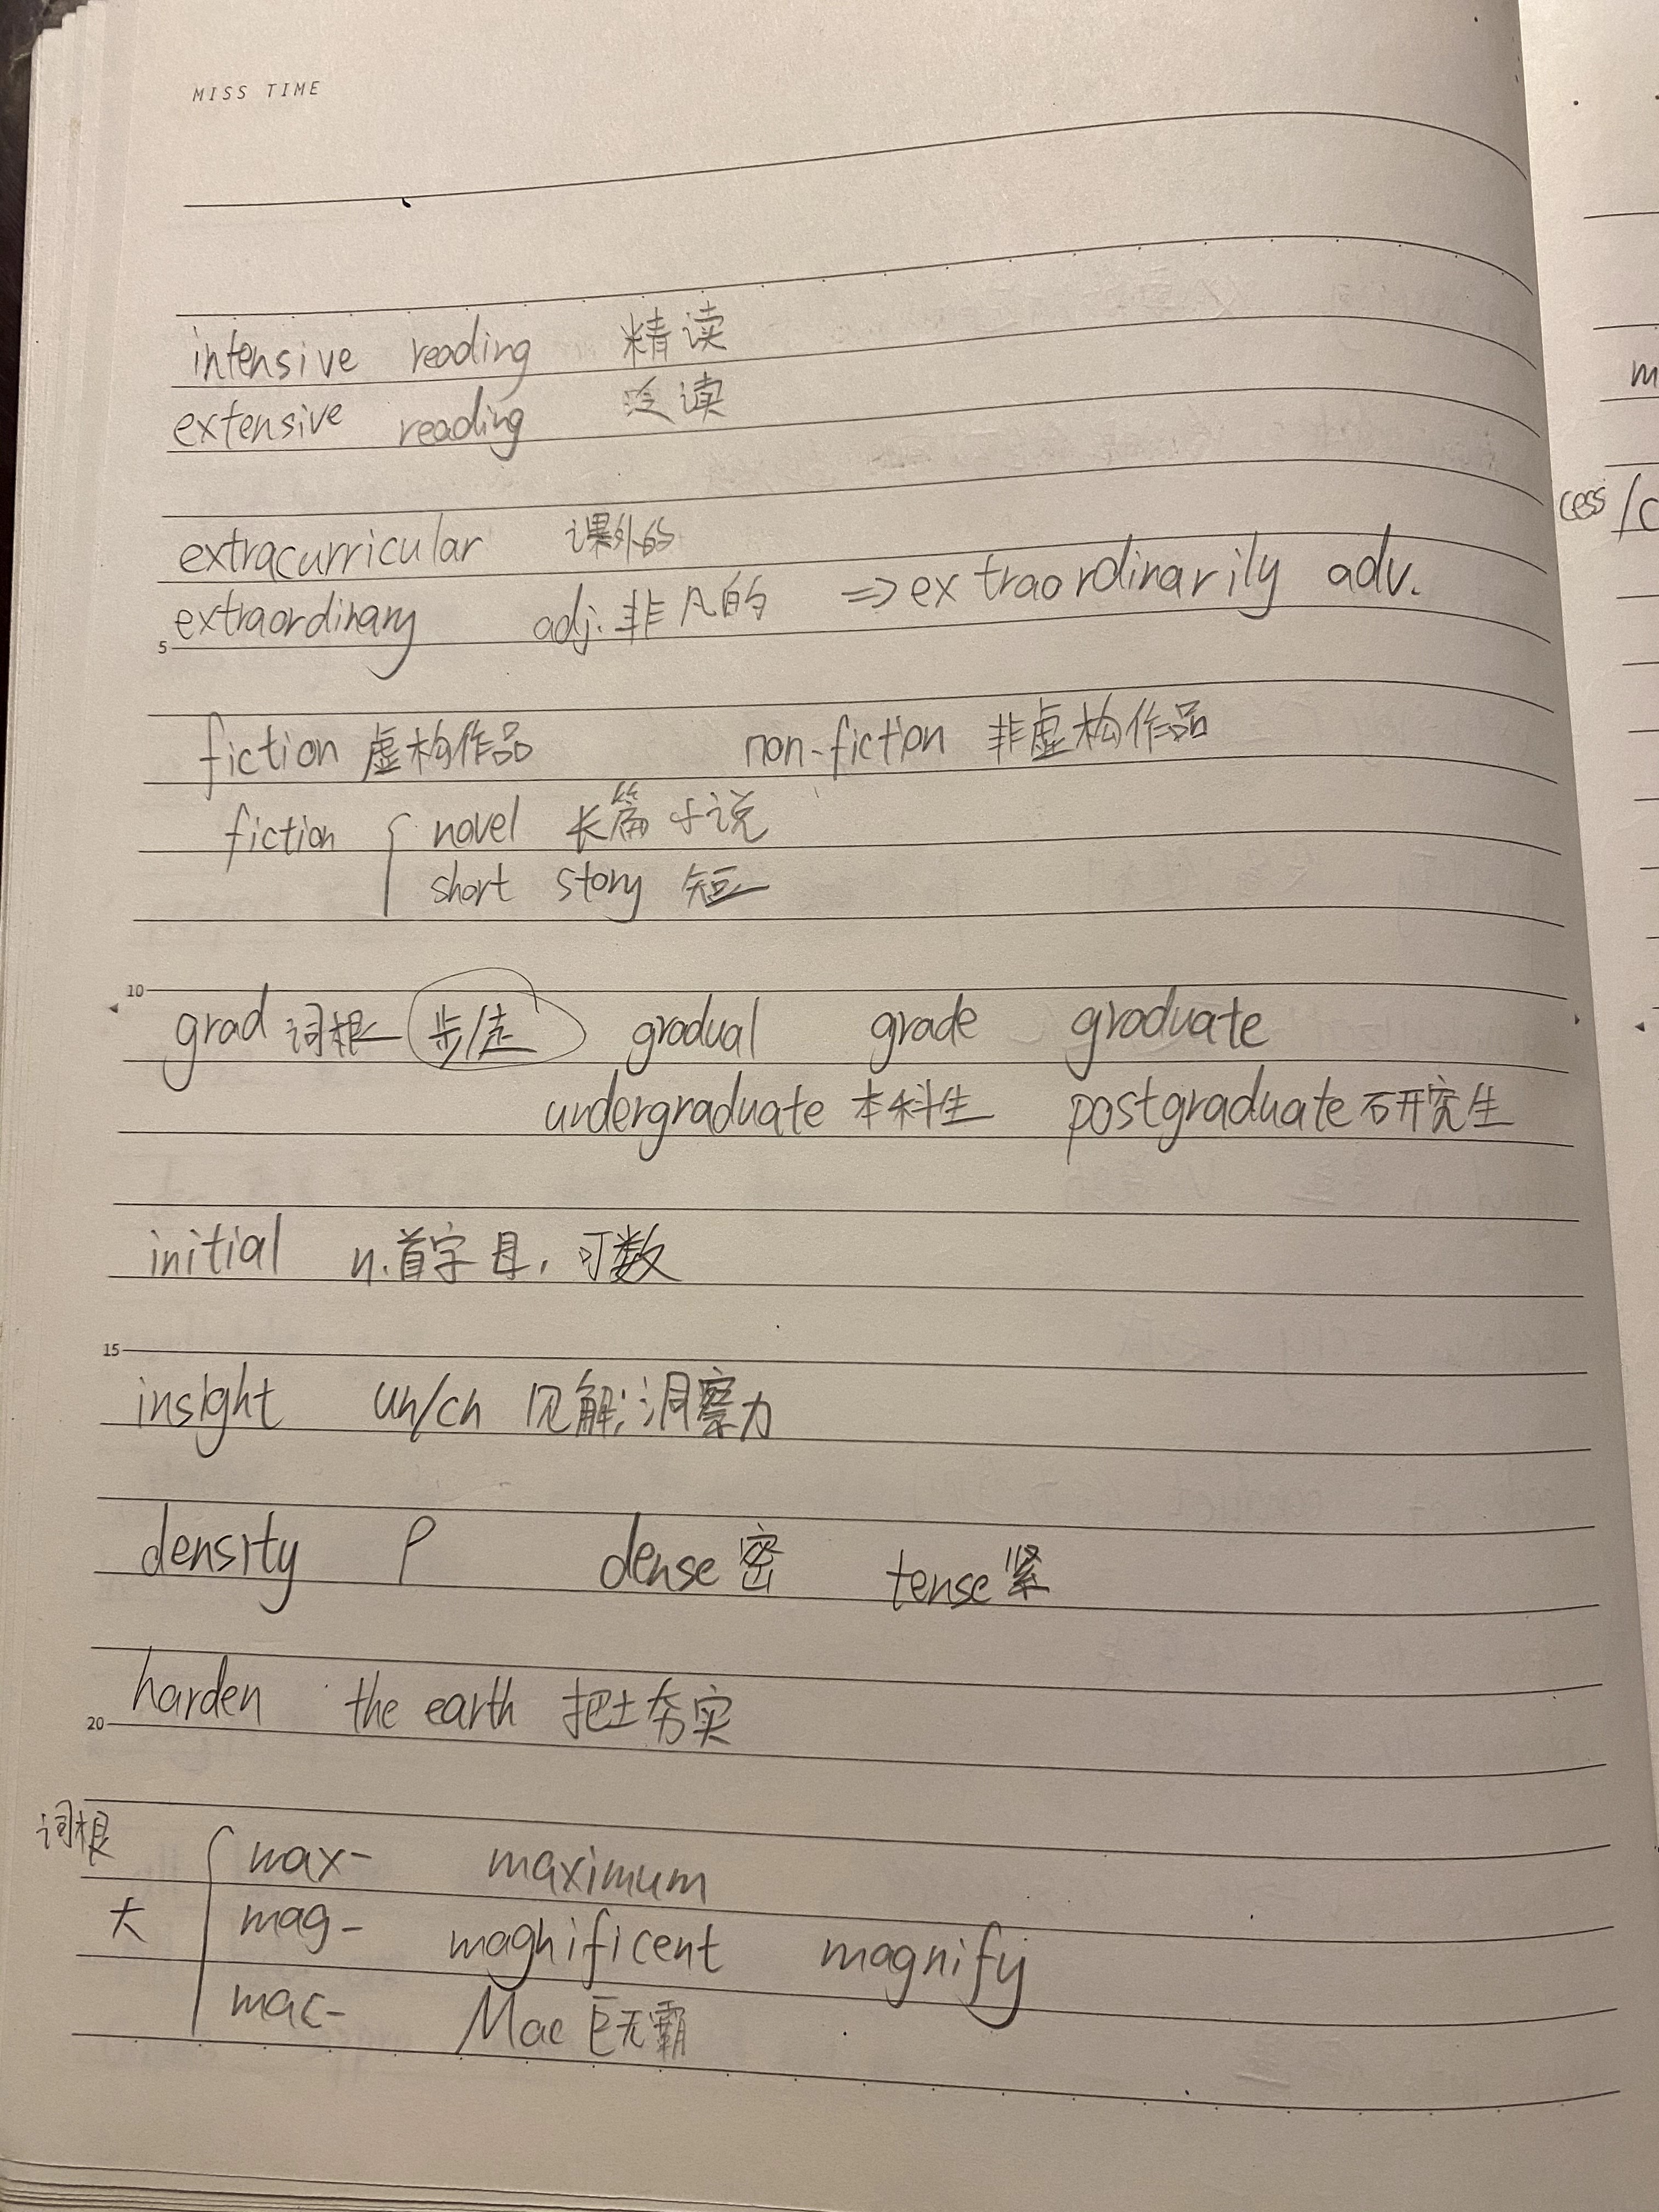 MISS TIME
intensive reading 精读
extensive reading 泛读
extracurricular 课外的
5 extraordinary adj. 非凡的 => extraordinarily adv.
fiction 虚构作品 non-fiction 非虚构作品
fiction { novel 长篇小说
short story 短
10
grad 词根 步/走 gradual grade graduate
undergraduate 本科生 postgraduate 研究生
initial n. 首字母, 可数
15
insight un/cn 见解; 洞察力
density ρ dense 密 tense 紧
harden the earth 把土夯实
20
词根 { max- maximum
大 mag- magnificent magnify
mac- Mac 巨无霸